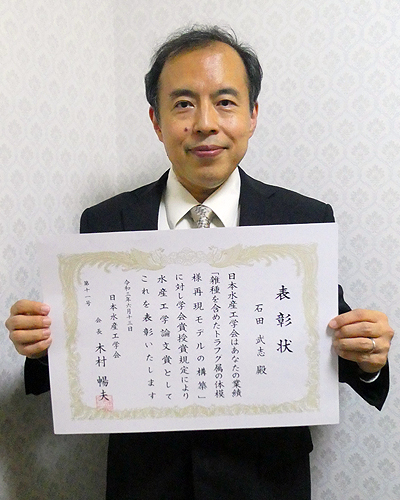 表彰状
石田 武志 殿
日本水産工学会はあなたの業績
「雑種を含めたトラフグ属の体模
様再現モデルの構築」
に対し学会賞授賞規定により
水産工学論文賞として
これを表彰いたします
令和二年六月十三日
日本水産工学会
会長 木村 暢夫
第十一号